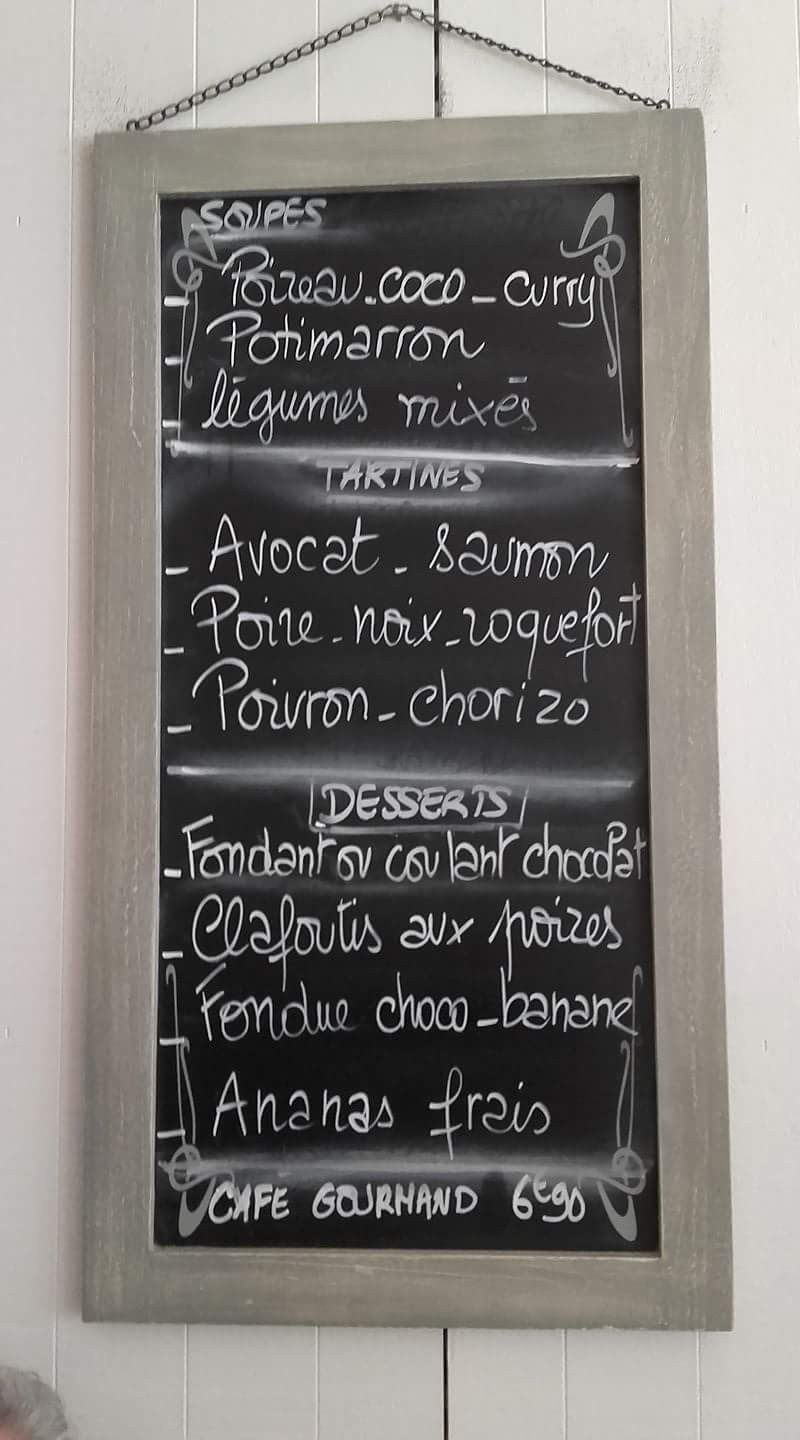 SOUPES
- Poireau-coco-curry
- Potimarron
- légumes mixés
TARTINES
- Avocat - saumon
- Poire-noix-roquefort
- Poivron-chorizo
DESSERTS
- Fondant ou coulant chocolat
- Clafoutis aux poires
- Fondue choco-banane
- Ananas frais
CAFÉ GOURMAND 6€90